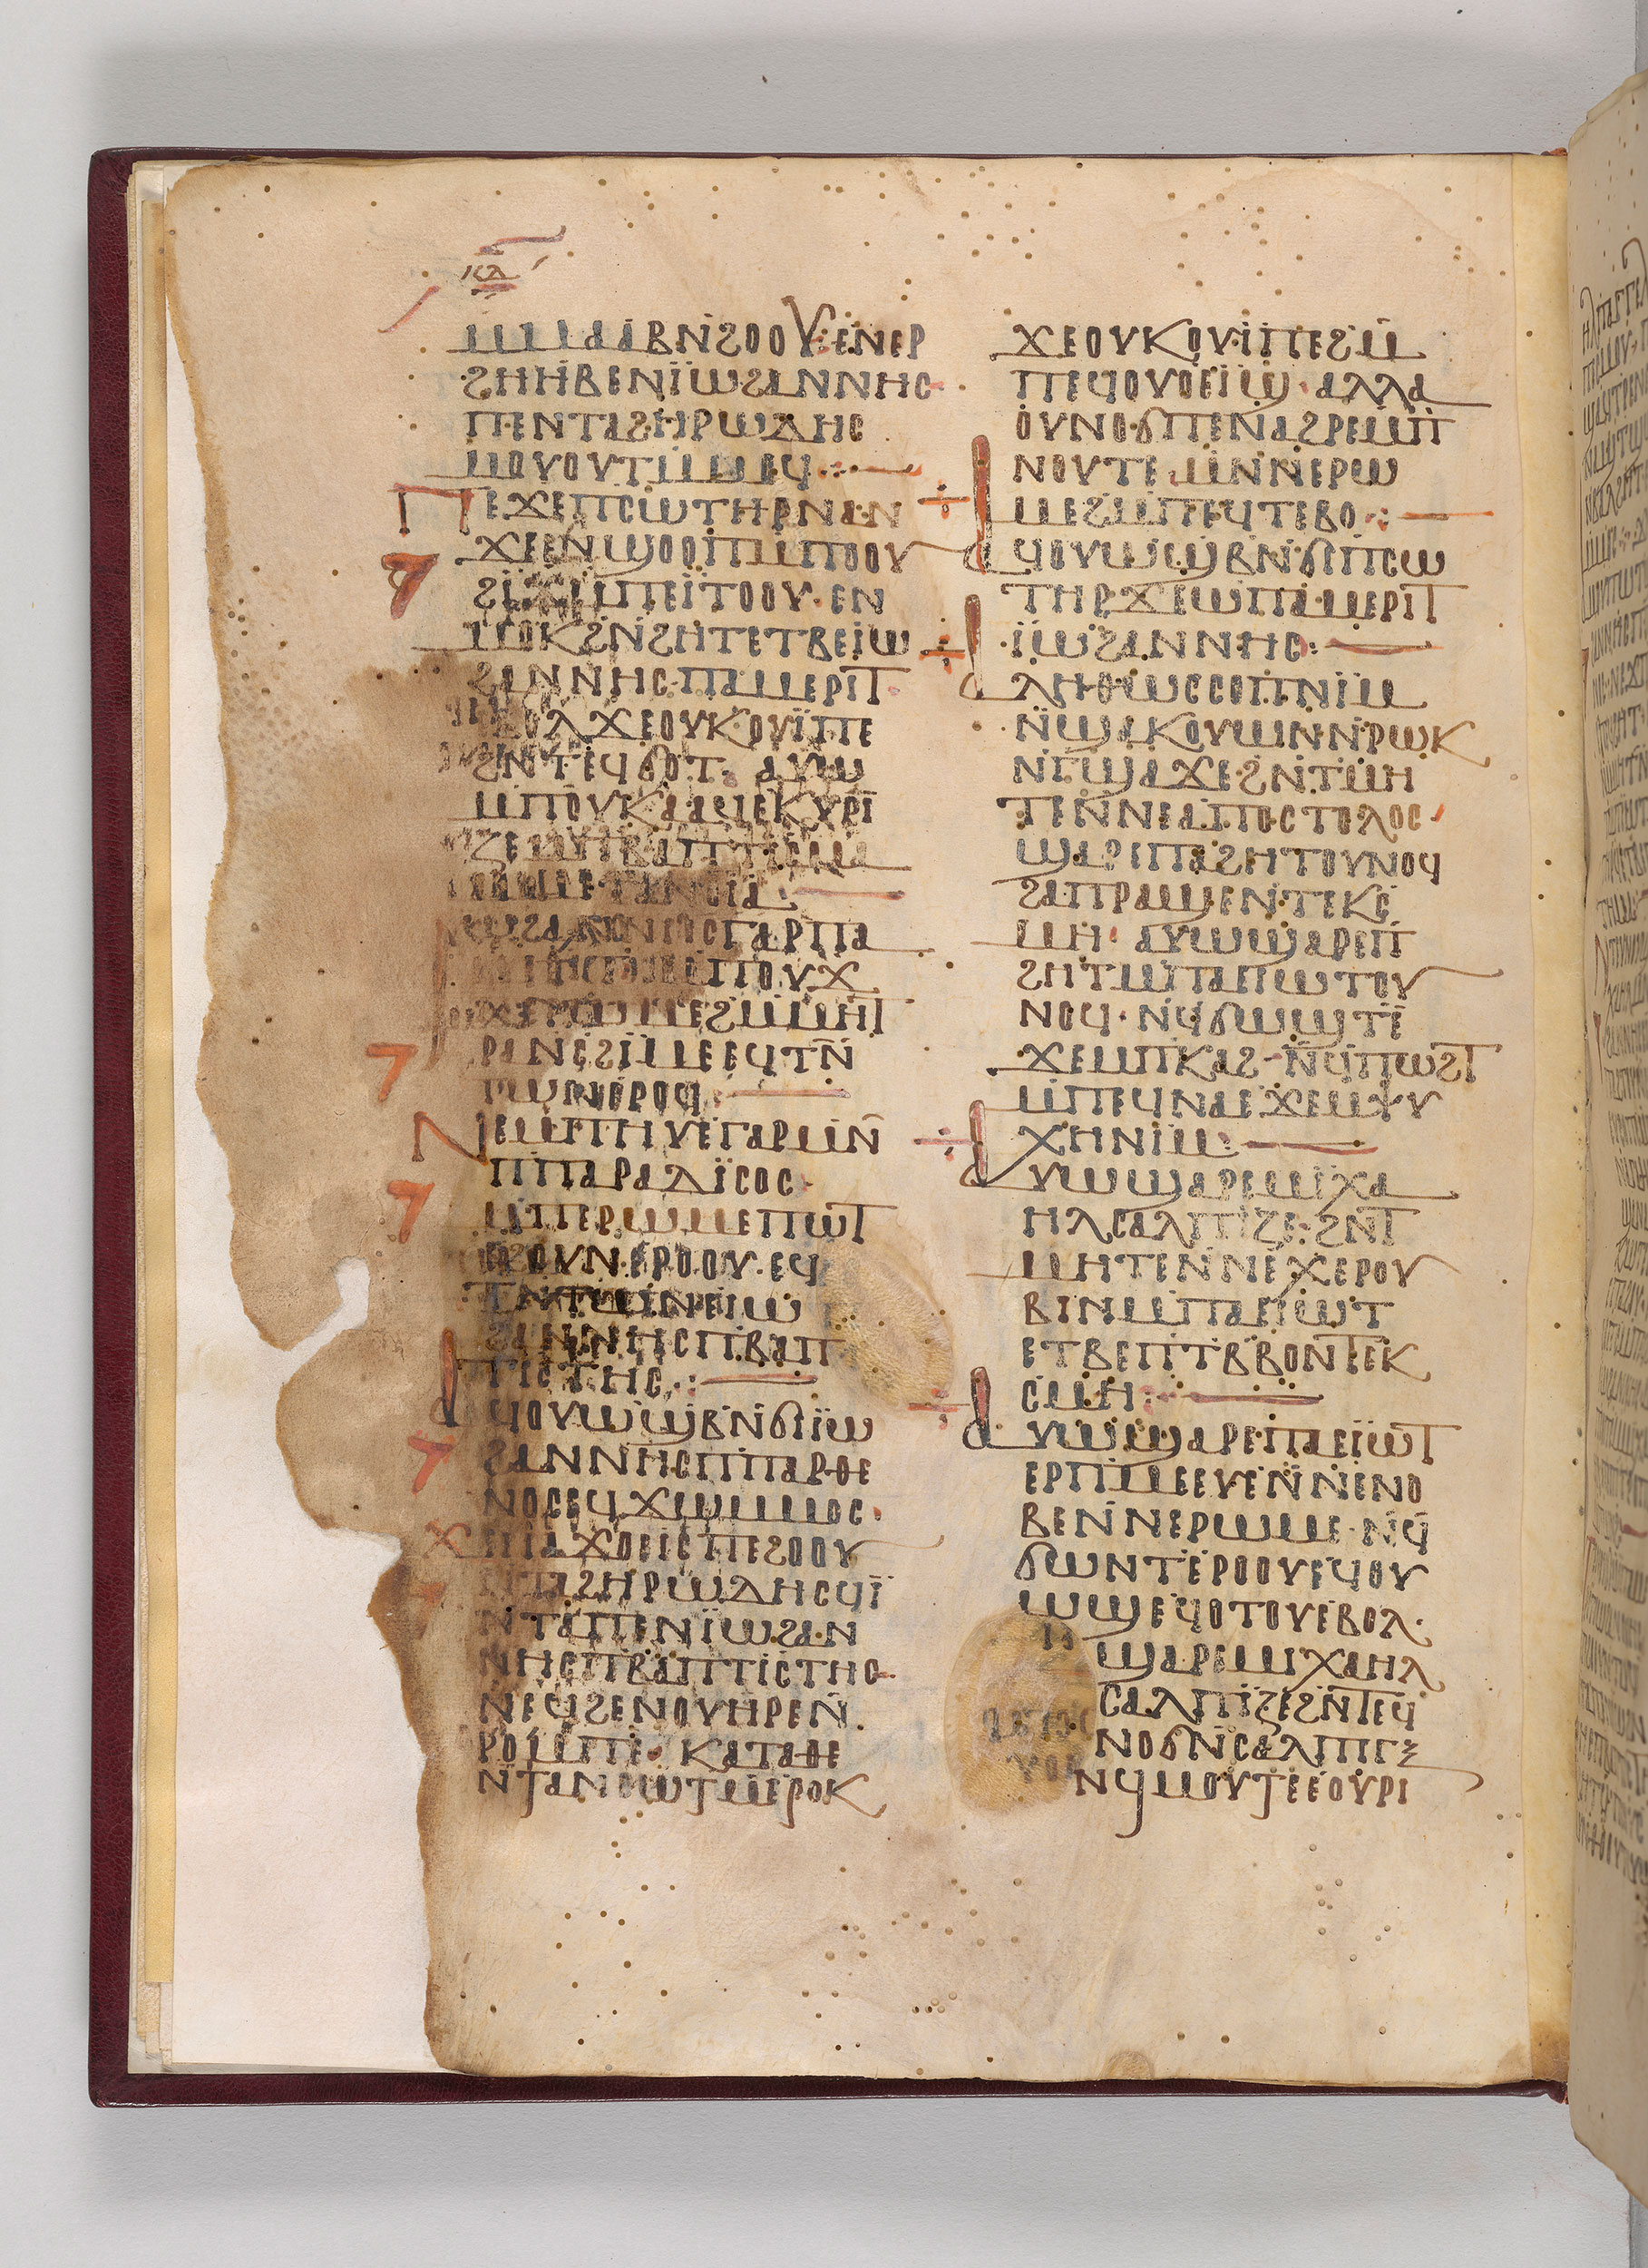 ⲕⲇ
ⲙⲙⲁⲁⲃⲛϩⲟⲟⲩⲉⲛⲉⲣ
ϩⲏⲏⲃⲉⲛⲓⲱϩⲁⲛⲛⲏⲥ
ⲡⲉⲛⲧⲁϩⲏⲣⲱⲇⲏⲥ
ⲙⲟⲩⲟⲩⲧⲙⲙⲟϥ
ⲡⲉϫⲉⲡⲥⲱⲧⲏⲣⲛⲁⲛ
ϫⲉⲉⲛϣⲟⲟⲡⲙⲡⲟⲟⲩ
ϩⲓϫⲙⲡⲉⲓⲧⲟⲟⲩ ⲉⲛ
ⲙⲟⲕϩⲛϩⲏⲧⲉⲧⲃⲉⲓⲱ
ϩⲁⲛⲛⲏⲥⲡⲁⲙⲉⲣⲓⲧ
ⲟⲗϫⲉⲟⲩⲕⲟⲩⲓⲡⲉ
ϩⲛⲧⲉϥϭⲟⲧ ⲁⲩⲱ
ⲙⲡⲟⲩⲕⲁⲁϥⲉⲕⲩⲣⲓ
ⲍⲉⲙⲡⲃⲁⲡⲧⲓⲥⲙⲁ
ⲙⲙⲉⲧⲁⲛⲟⲓⲁ
ⲅⲁⲣⲡⲁ
ⲡⲟⲩϫ
ⲙⲉϩⲙⲙⲏⲧ
ⲣⲁⲛⲉϩⲓⲙⲉⲉϥⲧⲛ
ⲧⲱⲛⲉⲣⲟϥ
ⲛⲉⲙⲡⲏⲩⲉⲅⲁⲣⲙⲛ
ⲡⲡⲁⲣⲁⲇⲓⲥⲟⲥ
ⲙⲡⲉⲣⲱⲙⲉⲡⲱⲧ
ⲉϩⲟⲩⲛⲉⲣⲟⲟⲩ ⲉϥ
ⲧⲛⲧⲱⲛⲉⲓⲱ
ϩⲁⲛⲛⲏⲥⲡⲃⲁⲡ
ⲧⲓⲥⲧⲏⲥ
ⲁϥⲟⲩⲱϣⲃⲛϭⲓⲓⲱ
ϩⲁⲛⲛⲏⲥⲡⲡⲁⲣⲑⲉ
ⲛⲟⲥⲉϥϫⲱⲙⲙⲟⲥ
ϫⲉⲡⲁϫⲟⲉⲓⲥⲡⲉϩⲟⲟⲩ
ⲛⲧⲁϩⲏⲣⲱⲇⲏⲥϥⲓ
ⲛⲧⲁⲡⲉⲛⲓⲱϩⲁⲛ
ⲛⲏⲥⲡⲃⲁⲡⲧⲓⲥⲧⲏⲥ
ⲛⲉϥϩⲉⲛⲟⲩⲏⲣⲉⲛ
ⲣⲟⲙⲡⲉ ⲕⲁⲧⲁⲑⲉ
ⲛⲧⲁⲛⲥⲱⲧⲙⲉⲣⲟⲕ
ϫⲉⲟⲩⲕⲟⲩⲓⲡⲉϩⲙ
ⲡⲉϥⲟⲩⲟⲉⲓϣ ⲁⲗⲗⲁ
ⲟⲩⲛⲟϭⲡⲉⲛⲁϩⲣⲉⲙⲡ
ⲛⲟⲩⲧⲉ ⲙⲛⲛⲉⲣⲱ
ⲙⲉϩⲙⲡⲉϥⲧⲃⲃⲟ
ⲁϥⲟⲩⲱϣⲃⲛϭⲓⲡⲥⲱ
ⲧⲏⲣϫⲉⲱⲡⲁⲙⲉⲣⲓⲧ
ⲓⲱϩⲁⲛⲛⲏⲥ
ⲁⲗⲏⲑⲱⲥⲥⲟⲡⲛⲓⲙ
ⲛϣⲁⲕⲟⲩⲱⲛⲛⲣⲱⲕ
ⲛⲅϣⲁϫⲉϩⲛⲧⲙⲏ
ⲧⲉⲛⲛⲉⲁⲡⲟⲥⲧⲟⲗⲟⲥ
ϣⲁⲣⲉⲡⲁϩⲏⲧⲟⲩⲛⲟϥ
ϩⲁⲡⲣⲁϣⲉⲛⲧⲉⲕⲥ
ⲙⲏ ⲁⲩⲱϣⲁⲣⲉⲡ
ϩⲏⲧⲙⲡⲁⲉⲓⲱⲧⲟⲩ
ⲛⲟϥ ⲛϥϭⲱϣⲧⲉ
ϫⲉⲙⲡⲕⲁϩ ⲛϥⲡⲱϩⲧ
ⲙⲡⲉϥⲛⲁⲉϫⲉⲙⲯⲩ
ⲭⲏⲛⲓⲙ
ⲁⲩⲱϣⲁⲣⲉⲙⲓⲭⲁ
ⲏⲗⲥⲁⲗⲡⲓⲍⲉϩⲛⲧ
ⲙⲏⲧⲉⲛⲛⲉⲭⲉⲣⲟⲩ
ⲃⲓⲛⲙⲡⲁⲉⲓⲱⲧ
ⲉⲧⲃⲉⲡⲧⲃⲃⲟⲛⲧⲉⲕ
ⲥⲙⲏ
ⲁⲩⲱϣⲁⲣⲉⲡⲁⲉⲓⲱⲧ
ⲉⲣⲡⲙⲉⲉⲩⲉⲛⲛⲉⲛⲟ
ⲃⲉⲛⲛⲉⲣⲱⲙⲉ ⲛϥ
ϭⲱⲛⲧⲉⲣⲟⲟⲩⲉϥⲟⲩ
ⲱϣⲉϥⲟⲧⲟⲩⲉⲃⲟⲗ
ϣⲁⲣⲉⲙⲓⲭⲁⲏⲗ
ⲥⲁⲗⲡⲓⲍⲉϩⲛⲧⲉϥ
ⲛⲟϭⲛⲥⲁⲗⲡⲓⲅⲝ
ⲛϥⲙⲟⲩⲧⲉⲉⲟⲩⲣⲓ